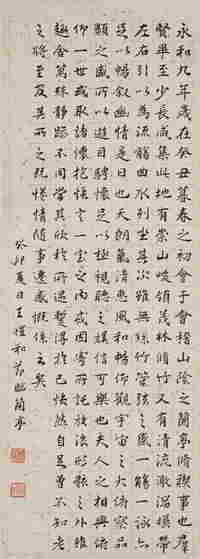 永和九年歲在癸丑暮春之初會于會稽山陰之蘭亭脩禊事也羣
賢畢至少長咸集此地有崇山峻領茂林脩竹又有清流激湍暎帶
左右引以為流觴曲水列坐其次雖無絲竹管弦之盛一觴一詠亦
足以暢敘幽情是日也天朗氣清惠風和暢仰觀宇宙之大俯察品
類之盛所以遊目騁懷足以極視聽之娛信可樂也夫人之相與俯
仰一世或取諸懷抱悟言一室之內或因寄所託放浪形骸之外雖
趣舍萬殊靜躁不同當其欣於所遇暫得於己怏然自足曾不知老
之將至及其所之既惓情隨事遷感慨係之矣
癸卯夏日王和臨蘭亭